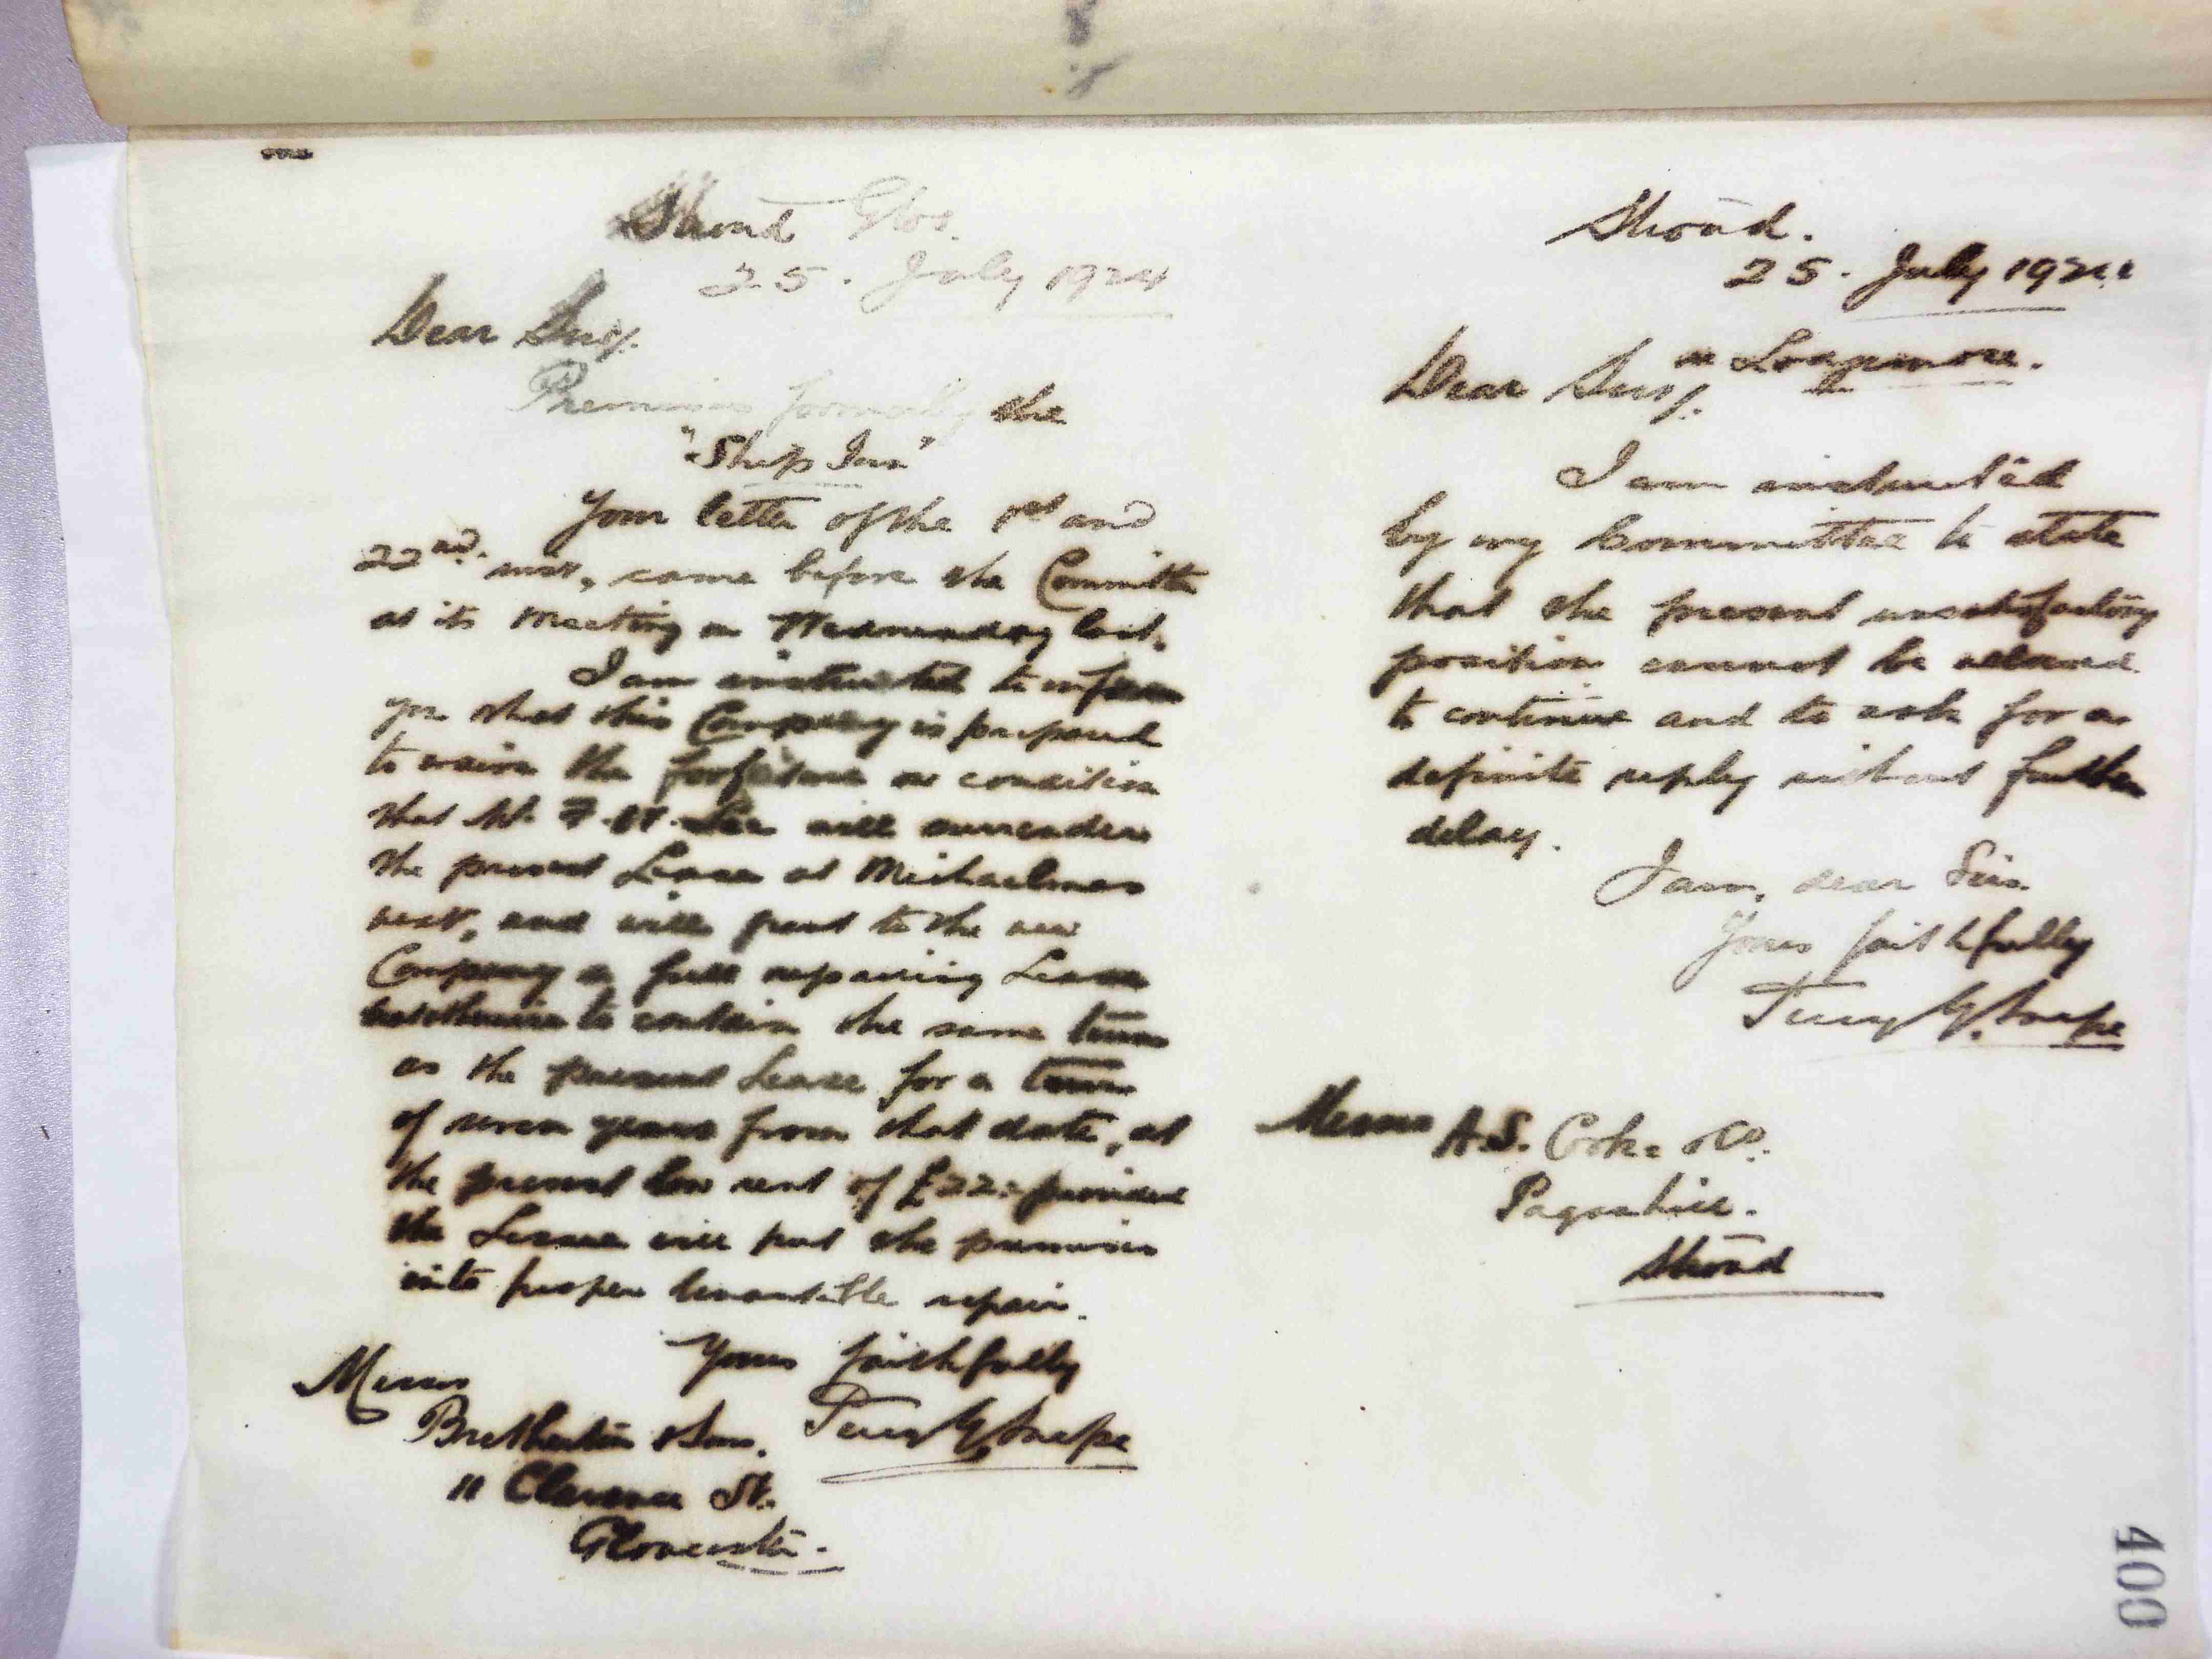 Stroud Glos.
25. July 1924
Dear Sirs,
Premises formerly the
"Ship Inn"
Your letter of the 1st and
22nd. inst, came before the Committee
at its Meeting on Wednesday last.
I am instructed to inform
you that this Company is prepared
to waive the forfeiture on condition
that Mr. F. W. Lee will surrender
the present Lease at Michaelmas
next, and will grant to the new
Company a full repairing Lease
but otherwise to contain the same terms
as the present Lease for a term
of seven years from that date, at
the present low rent of £22: provided
the Lessee will put the premises
into proper tenantable repair.
Yours faithfully
Messrs
Bretherton & Sons.
11 Clarence St.
Gloucester.
Stroud.
25. July 1924
Dear Sirs,
re Longmore.
I am instructed
by my Committee to state
that the present unsatisfactory
position cannot be allowed
to continue and to ask for a
definite reply without further
delay.
I am, dear Sirs
Yours faithfully
Messrs A.S. Cooke & Co.
Paganhill.
Stroud
400